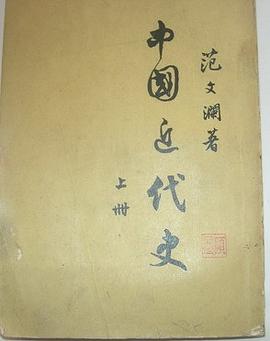 范文澜著
中國近代史
上册